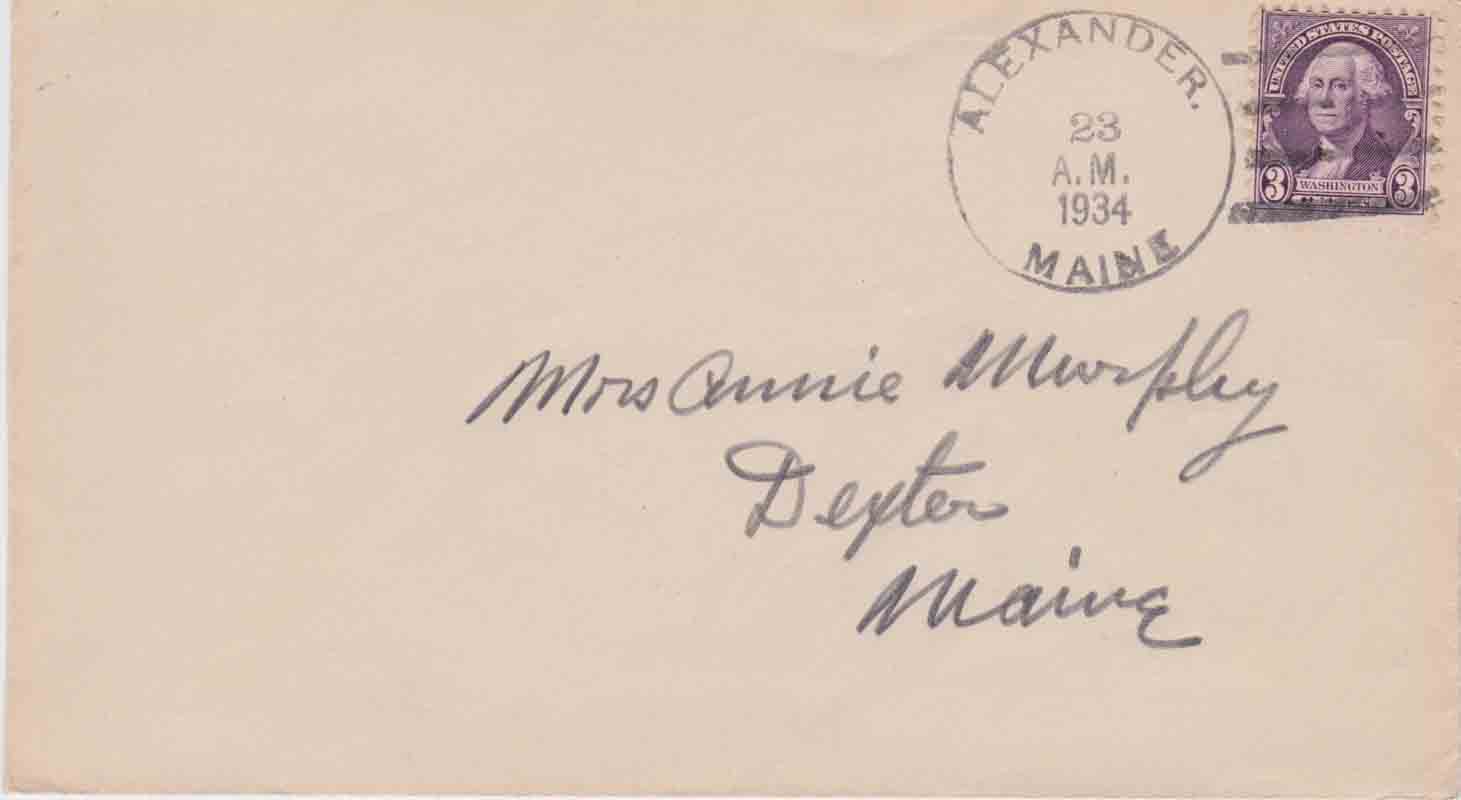 ALEXANDER.
23
A.M.
1934
MAINE
UNITED STATES POSTAGE
3 WASHINGTON 3
Mrs Annie Murphy
Dexter
Maine